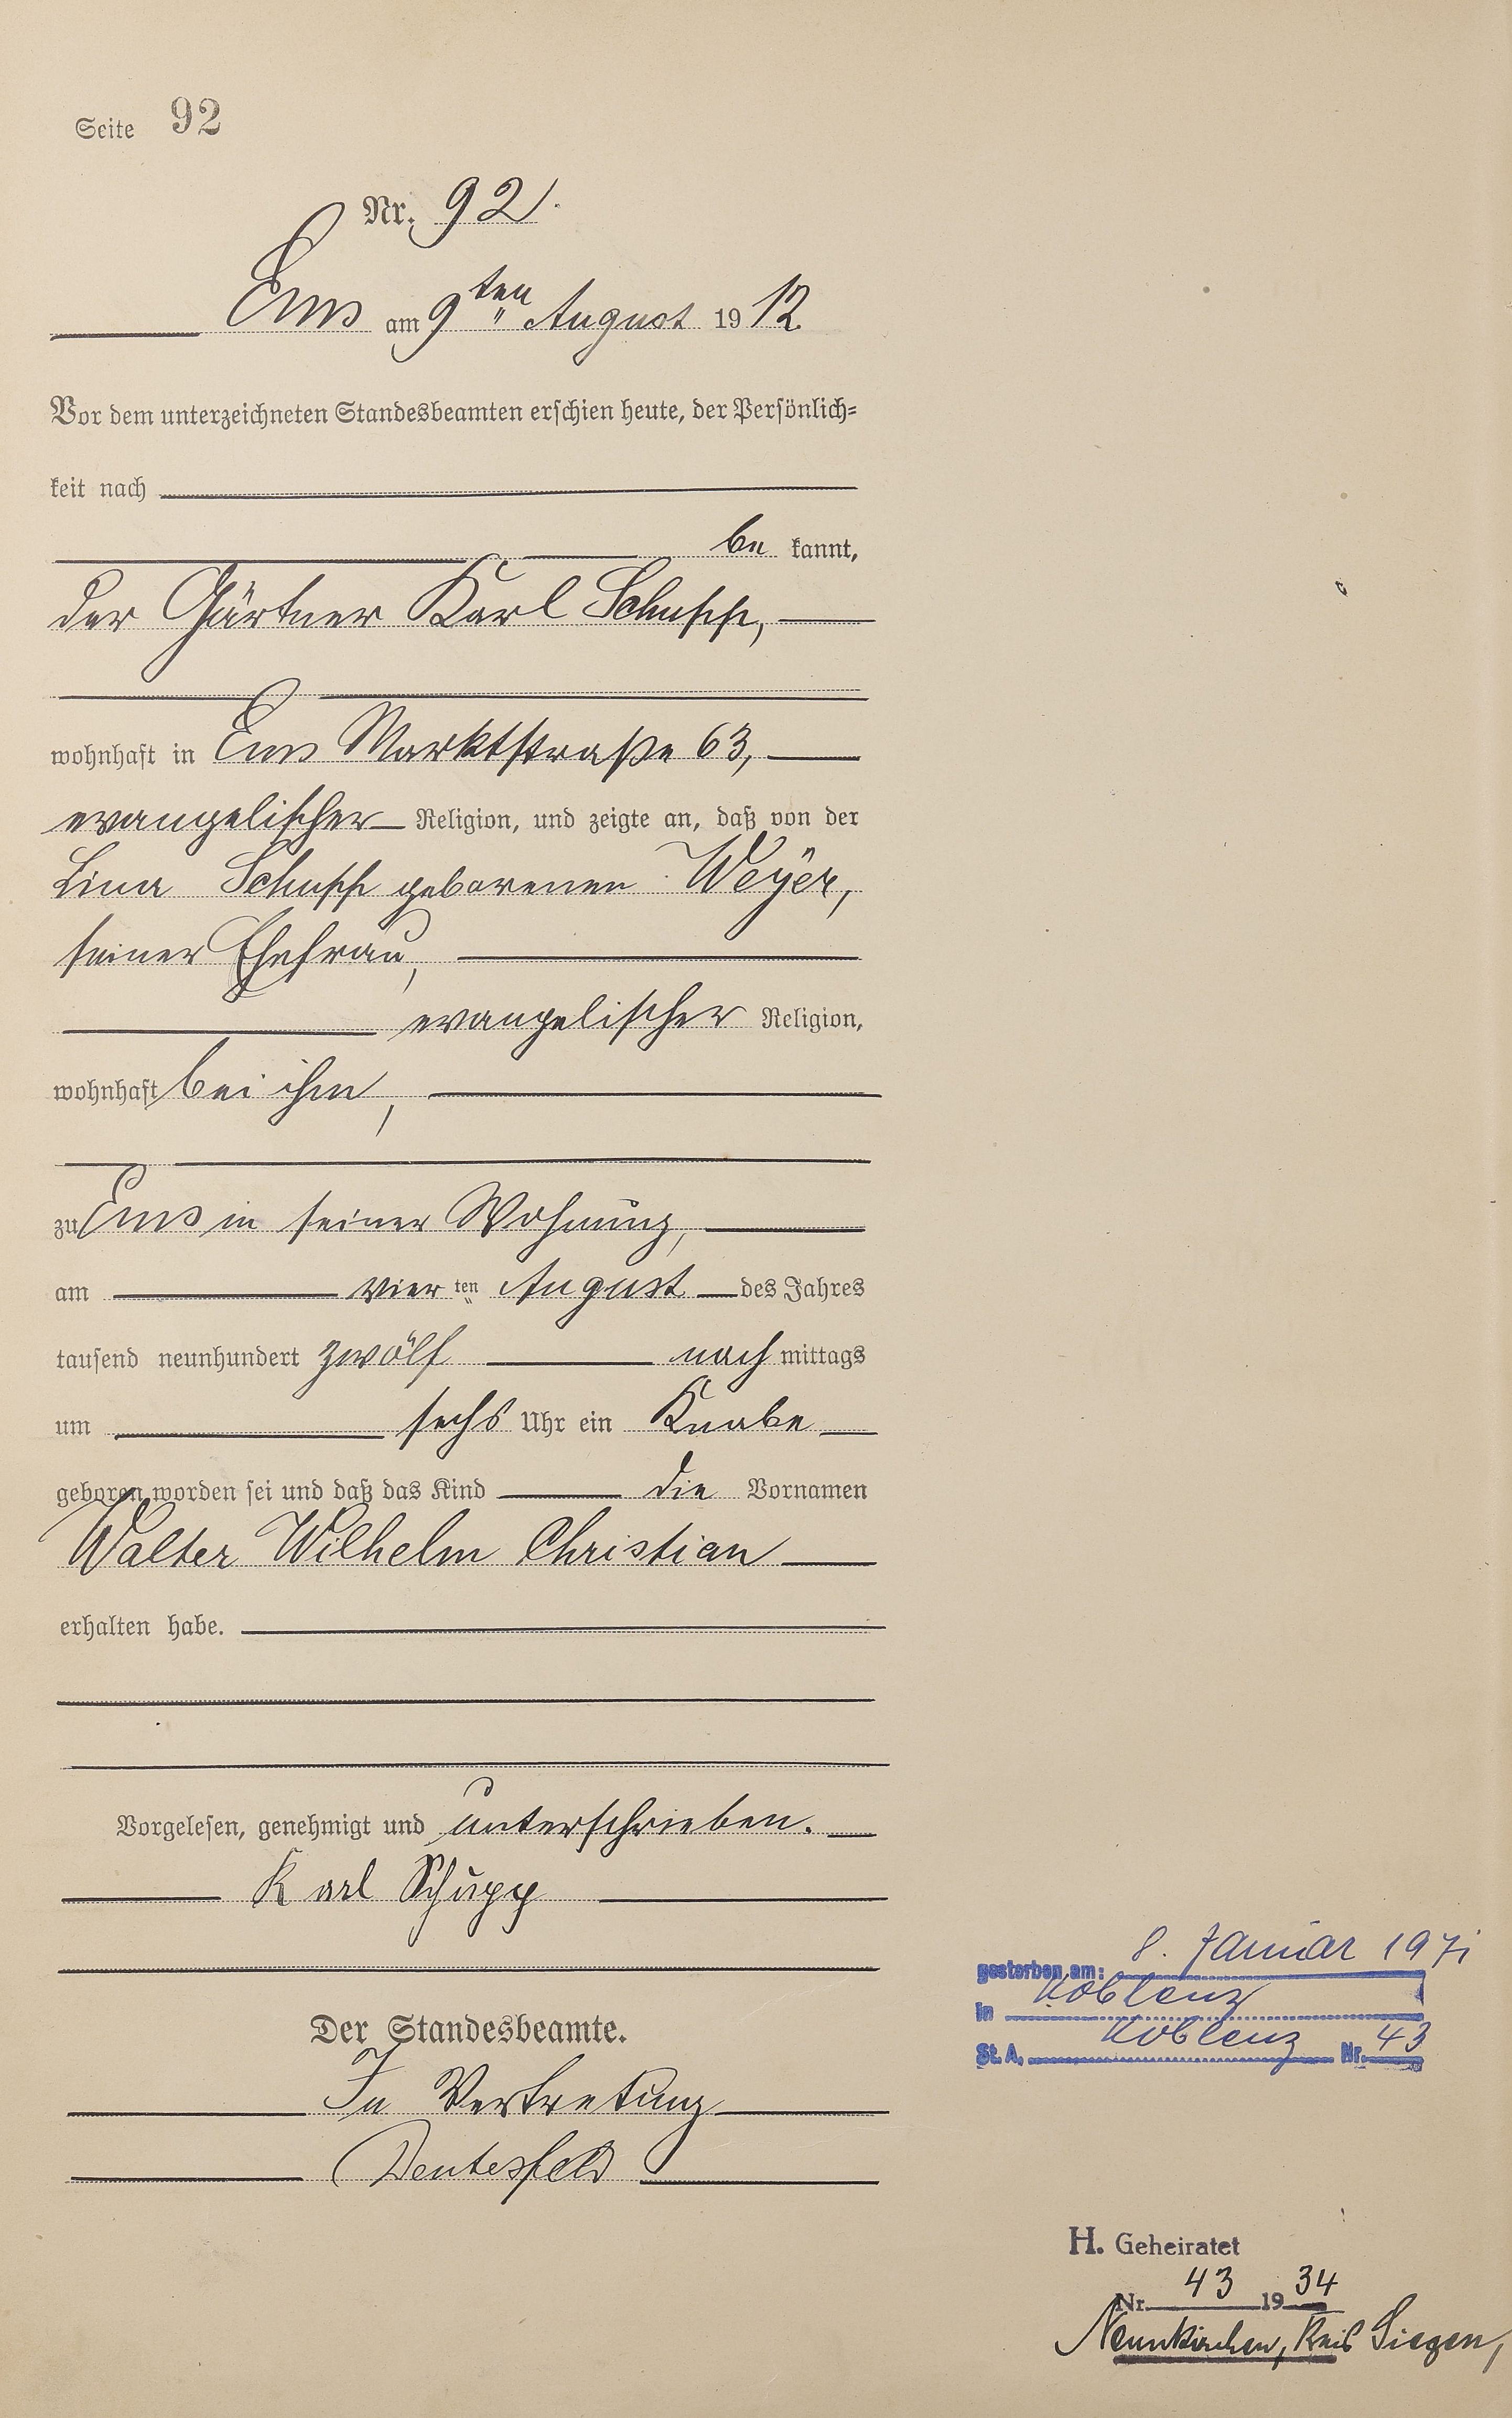 Seite 92
Nr. 92.
Ems am 9ten August 1912.
Vor dem unterzeichneten Standesbeamten erschien heute, der Persönlich-
keit nach
be kannt,
der Gärtner Karl Schupp,
wohnhaft in Ems Marktstraße 63,
evangelischer Religion, und zeigte an, daß von der
Lina Schupp geborenen Weÿer,
seiner Ehefrau,
evangelischer Religion,
wohnhaft bei ihm,
zu Ems in seiner Wohnung,
am vier ten August des Jahres
tausend neunhundert zwölf nach mittags
um sechs Uhr ein Knabe
geboren worden sei und daß das Kind die Vornamen
Walter Wilhelm Christian
erhalten habe.
Vorgelesen, genehmigt und unterschrieben.
Karl Schupp
Der Standesbeamte.
In Vertretung
gestorben am: 8. Januar 1971
in Koblenz
St. A. Koblenz Nr. 43
H. Geheiratet
Nr. 43 1934
Neunkirchen, Kreis Siegen,